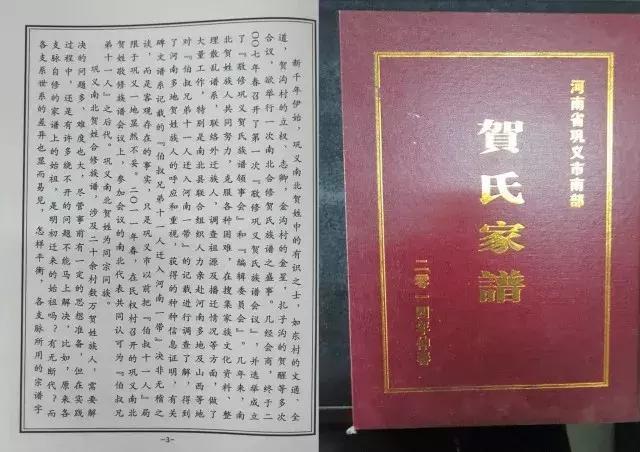 新千年伊始，巩义南北贺姓中的有识之士，如东村的文通，全
道，贺沟村的立权、志卿，金沟村的金星，扎子沟的贺醒等多次
合议，欲举行一次南北合修贺氏族谱之盛事。几经会商，终于二
〇〇七年春召开了第一次《敬修巩义贺氏族谱会议》，并选举成立
了《敬修巩义贺氏族谱领事会》和《编辑委员会》。几年来，南
北贺姓族人共同努力，克服各种困难，在搜集家族文化资料、整
理乱谱系，联络外迁族人、调查祖源及播迁情况等方面，做了
大量工作，特别是南北县联合组织人力亲赴河南多地及山西等地
对『伯叔兄弟十一人迁入河南一带』的记载进行调查了解，得到
了河南多地贺姓族人的呼应和重视，获得的种种信息证明，有关
碑文谱系记载的『伯叔兄弟十一人迁入河南一带』决非无稽之
谈，而是客观存在的事实，只是巩义市以前把『伯叔十一人』局
限于巩义一地显然不妥。二〇一一年春，在民权村召开的巩义南北
贺姓敬修族谱会议上，参加会议的南北代表共同认可为『伯叔兄
弟十一人』之后代。巩义南北贺姓为同宗同族。
巩义南北贺姓合修族谱，涉及二十余村数万贺姓族人，需要解
决的问题多，难度也大，尽管事前有一定的思想准备，但在实践
过程中，还是有许多绕不开的问题不能马上解决，比如，原来各
支脉自修的家谱上的始祖，是明初迁来的始祖吗？有无断代？而
各支系世系的差异也显而易见，怎样平衡，各支脉所用的宗谱字
-3-
河南省巩义市南部
賀氏家譜
二零一四年仲春